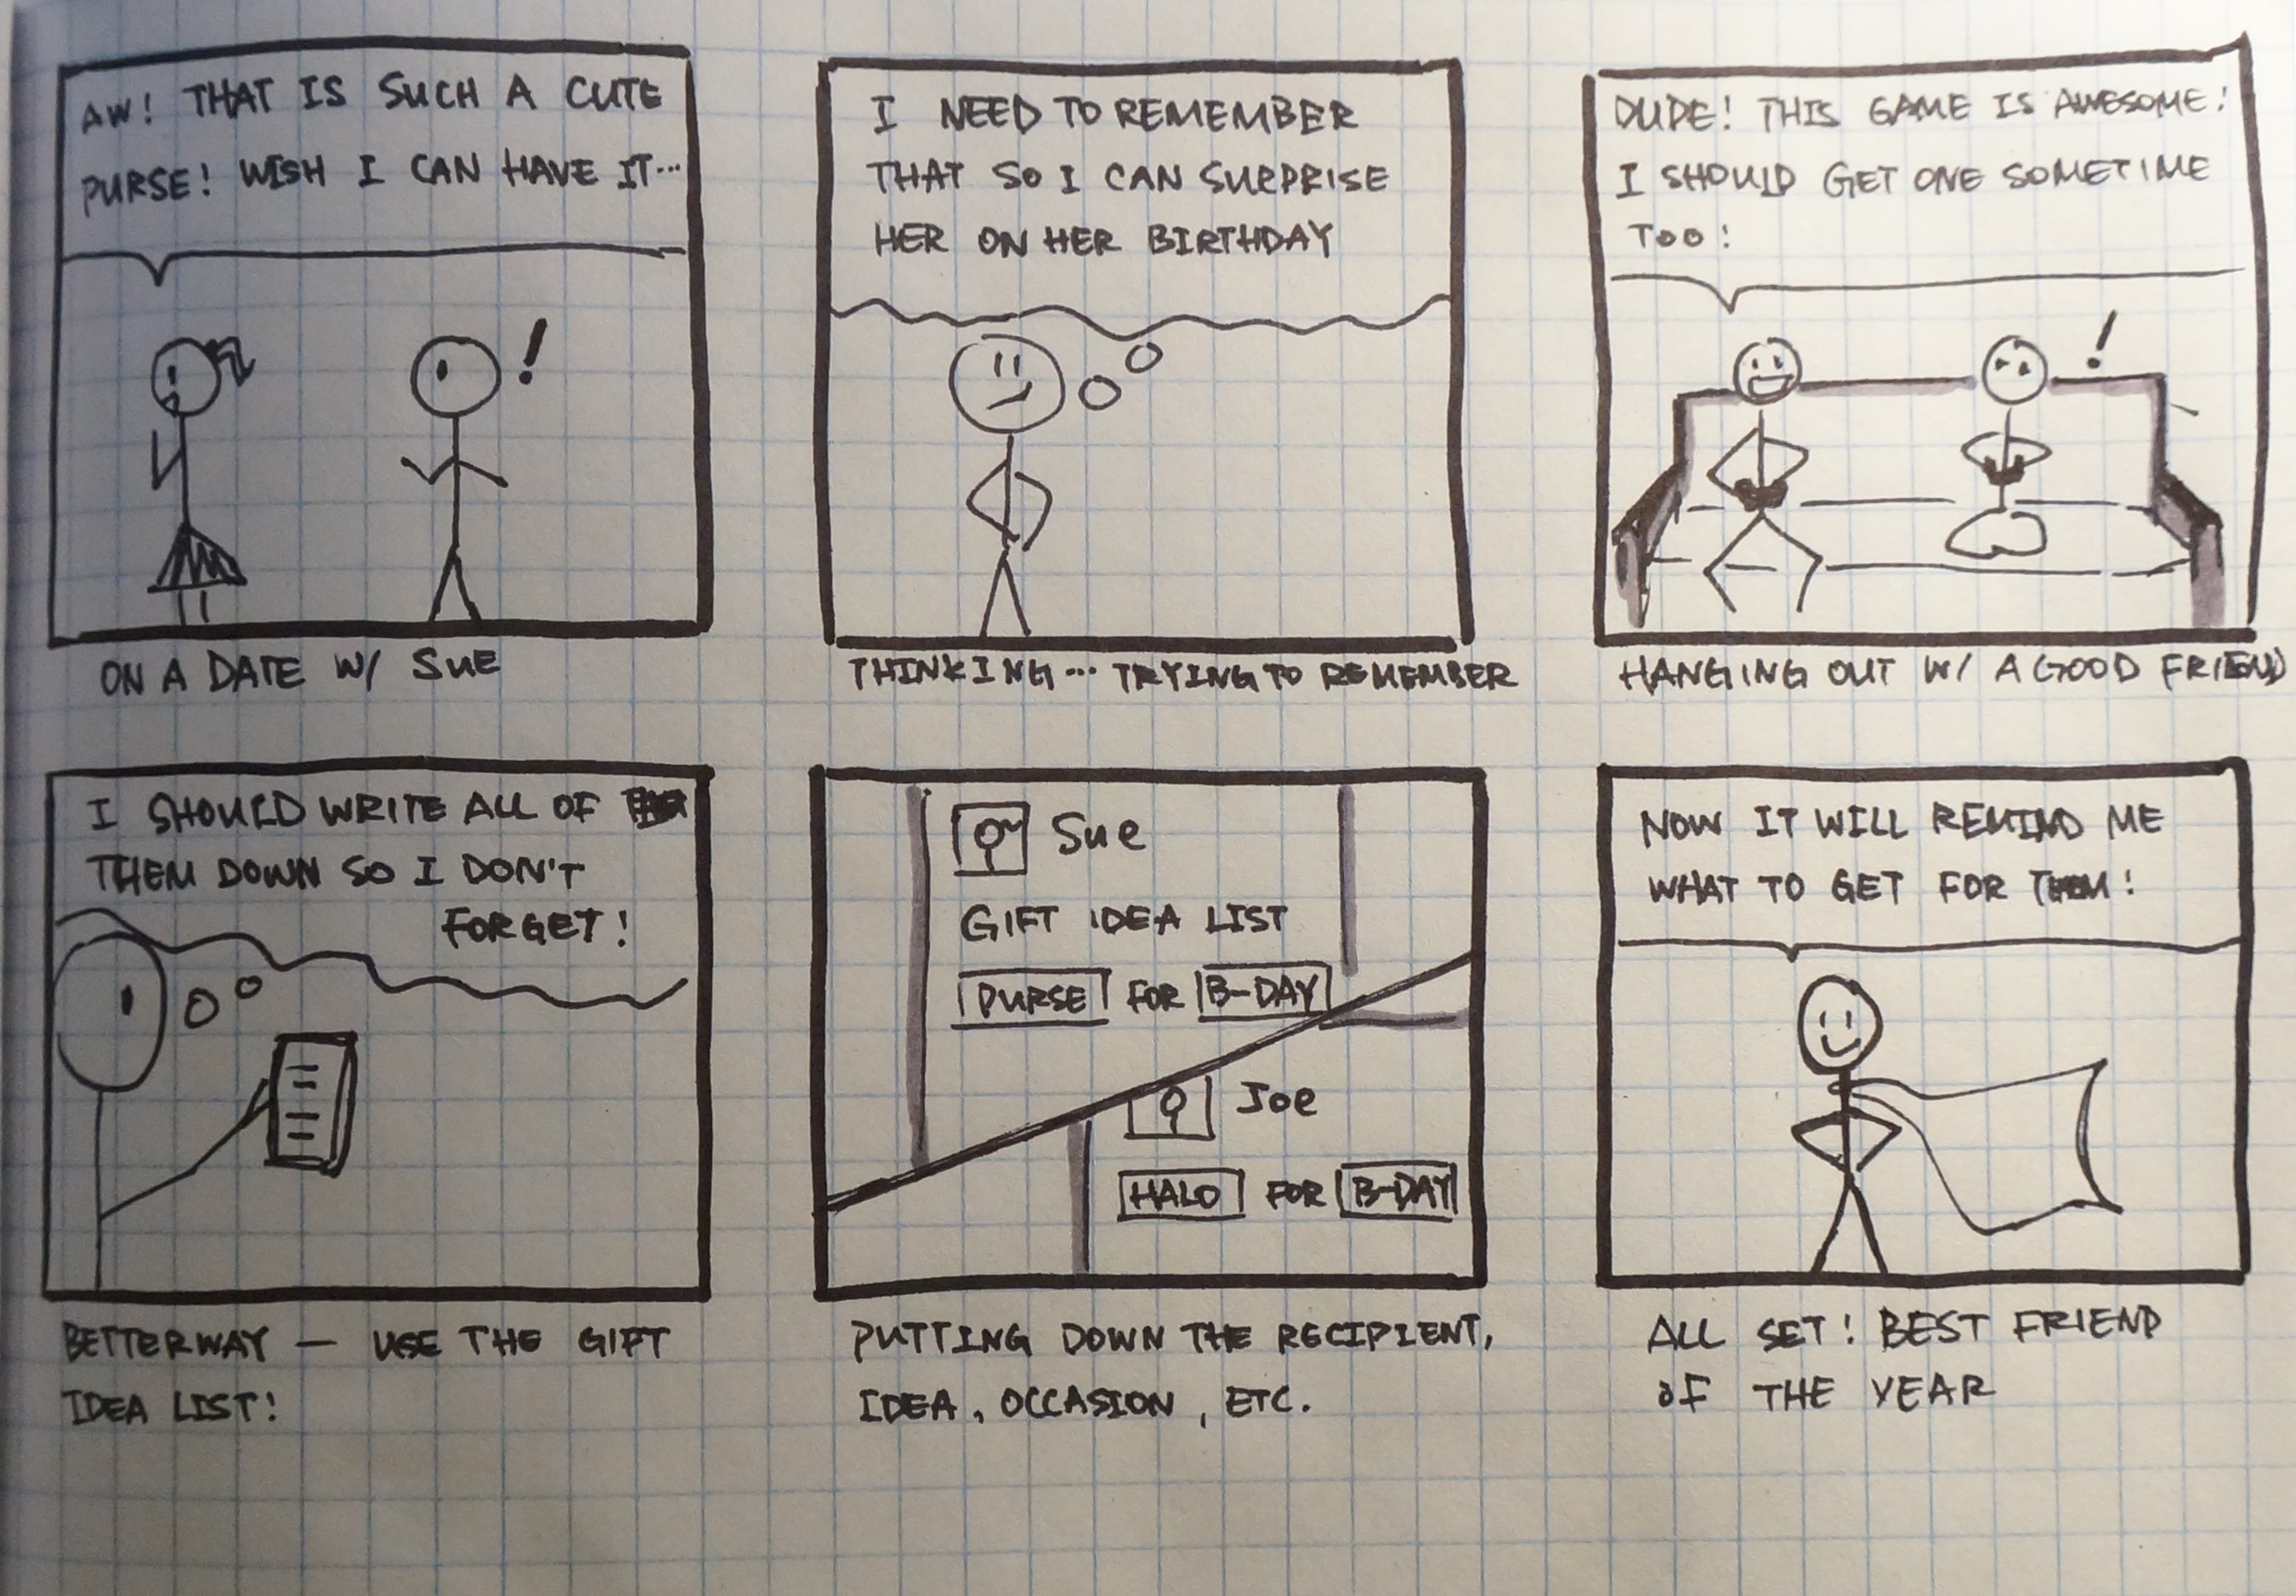 AW! THAT IS SUCH A CUTE
PURSE! WISH I CAN HAVE IT...
ON A DATE W/ SUE
I NEED TO REMEMBER
THAT SO I CAN SURPRISE
HER ON HER BIRTHDAY
THINKING... TRYING TO REMEMBER
DUDE! THIS GAME IS AWESOME!
I SHOULD GET ONE SOMETIME
TOO!
!
!
HANGING OUT W/ A GOOD FRIEND
I SHOULD WRITE ALL OF
THEM DOWN SO I DON'T
FORGET!
BETTER WAY — USE THE GIFT
IDEA LIST!
Sue
GIFT IDEA LIST
PURSE FOR B-DAY
Joe
HALO FOR B-DAY
PUTTING DOWN THE RECIPIENT,
IDEA, OCCASION, ETC.
NOW IT WILL REMIND ME
WHAT TO GET FOR THEM!
ALL SET! BEST FRIEND
OF THE YEAR